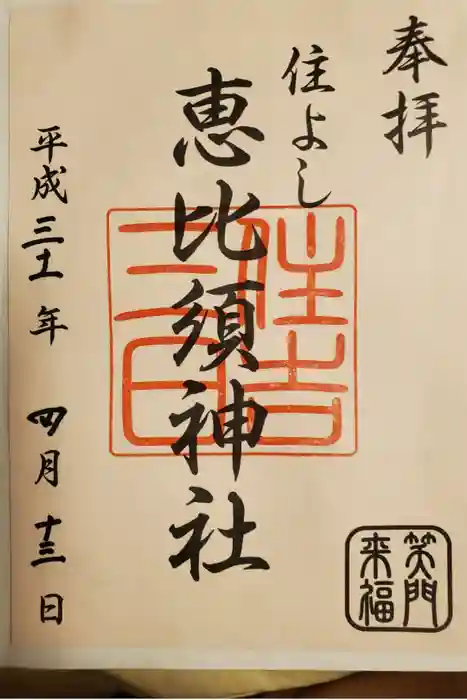 奉拝
住よし
恵比須神社
住吉
三日
平成三十一年 四月十三日
笑門
来福